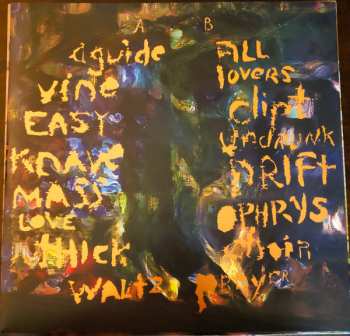 A
a guide
vine
EASY
KNAVE
MASS
LOVE
THICK
WALTZ
B
ALL
lovers
clipt
undrunk
DRIFT
OPHRYS
choir